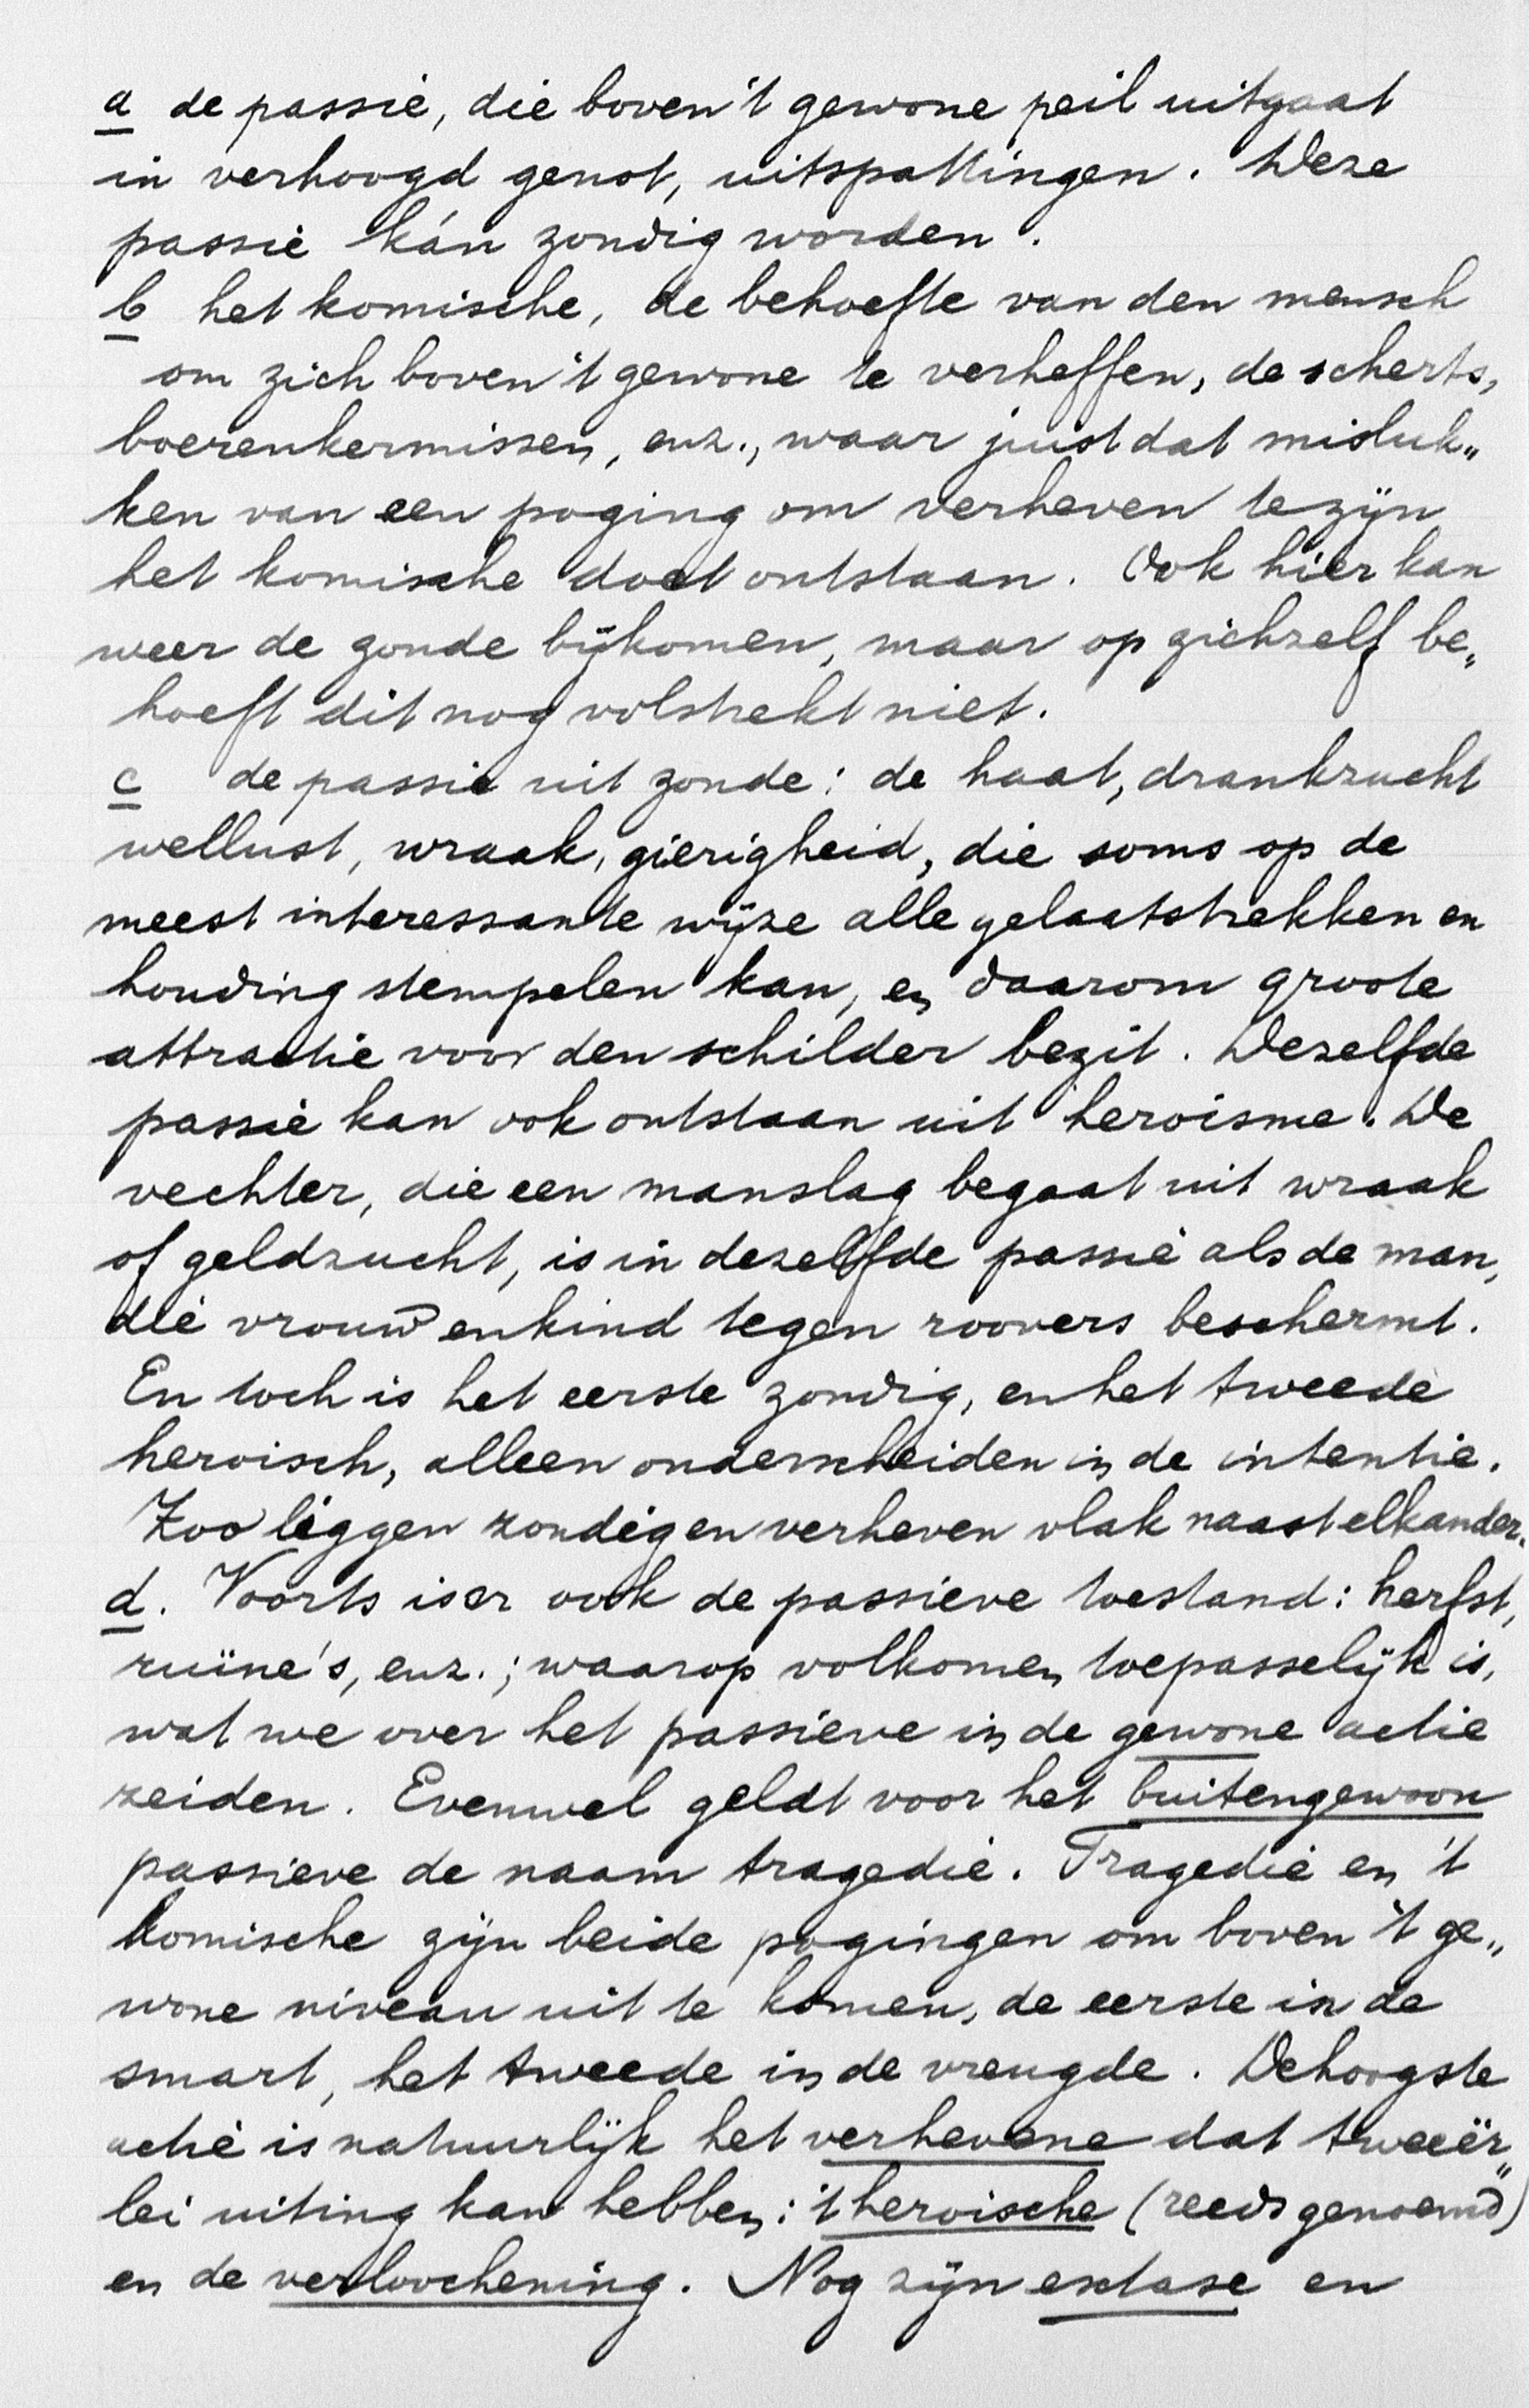 a de passie, die boven 't gewone peil uitgaat
in verhoogd genot, uitspattingen. Deze
passie kán zondig worden.
b het komische, de behoefte van den mensch
om zich boven 't gewone te verheffen, de scherts,
boerenkermissen, enz., waar juist dat misluk„
ken van een poging om verheven te zijn
het komische doet ontstaan. Ook hier kan
weer de zonde bijkomen, maar op zichzelf be„
hoeft dit nog volstrekt niet.
c de passie uit zonde: de haat, drankzucht
wellust, wraak, gierigheid, die soms op de
meest interessante wijze alle gelaatstrekken en
houding stempelen kan, en daarom groote
attractie voor den schilder bezit. Dezelfde
passie kan ook ontstaan uit heroisme. De
vechter, die een manslag begaat uit wraak
of geldzucht, is in dezelfde passie als de man,
die vrouw en kind tegen roovers beschermt.
En toch is het eerste zondig, en het tweede
heroisch, alleen onderscheiden in de intentie.
Zoo liggen zondig en verheven vlak naast elkander.
d. Voorts is er ook de passieve toestand: herfst,
ruïne's, enz.; waarop volkomen toepasselijk is,
wat we over het passieve in de gewone actie
zeiden. Evenwel geldt voor het buitengewoon
passieve de naam tragedie. Tragedie en 't
komische zijn beide pogingen om boven 't ge„
wone niveau uit te komen, de eerste in de
smart, het tweede in de vreugde. De hoogste
actie is natuurlijk het verhevene dat tweeër„
lei uiting kan hebben: 't heroische (reeds genoemd)
en de verloochening. Nog zijn extase en